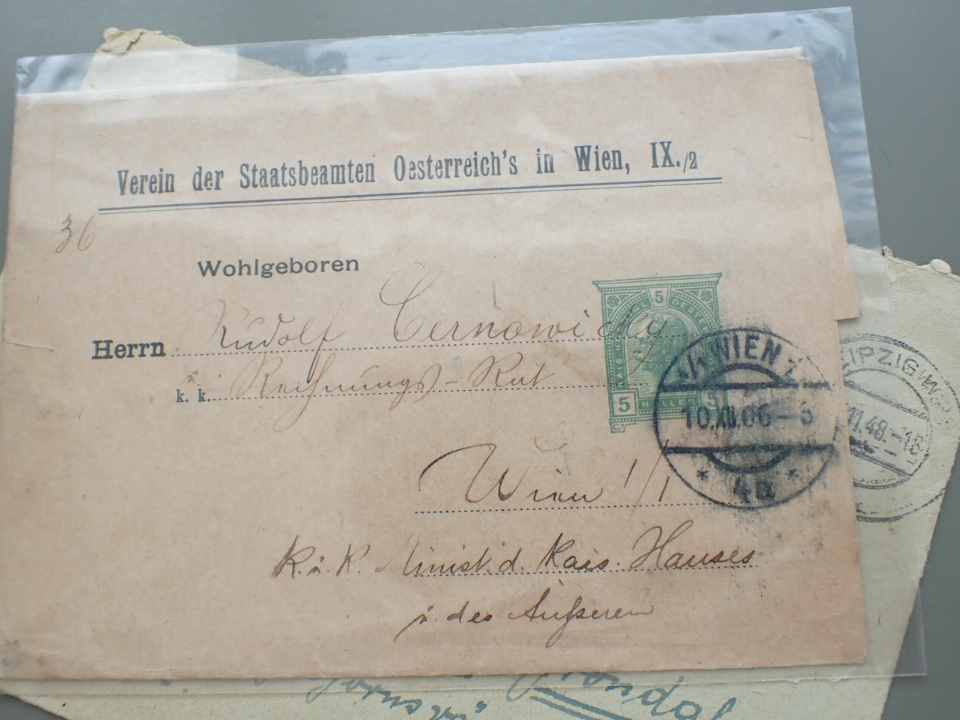 Verein der Staatsbeamten Oesterreich's in Wien, IX./2
36
Wohlgeboren
Herrn Rudolf Cernowicky
k. k. Rechnungs-Rat
5
5
5
WIEN 1
10.XII.06-5
* 4a *
Wien 1/1
K. u. K. Minist. d. Kais. Hauses
u. des Äußeren
LEIPZIG
48.-18